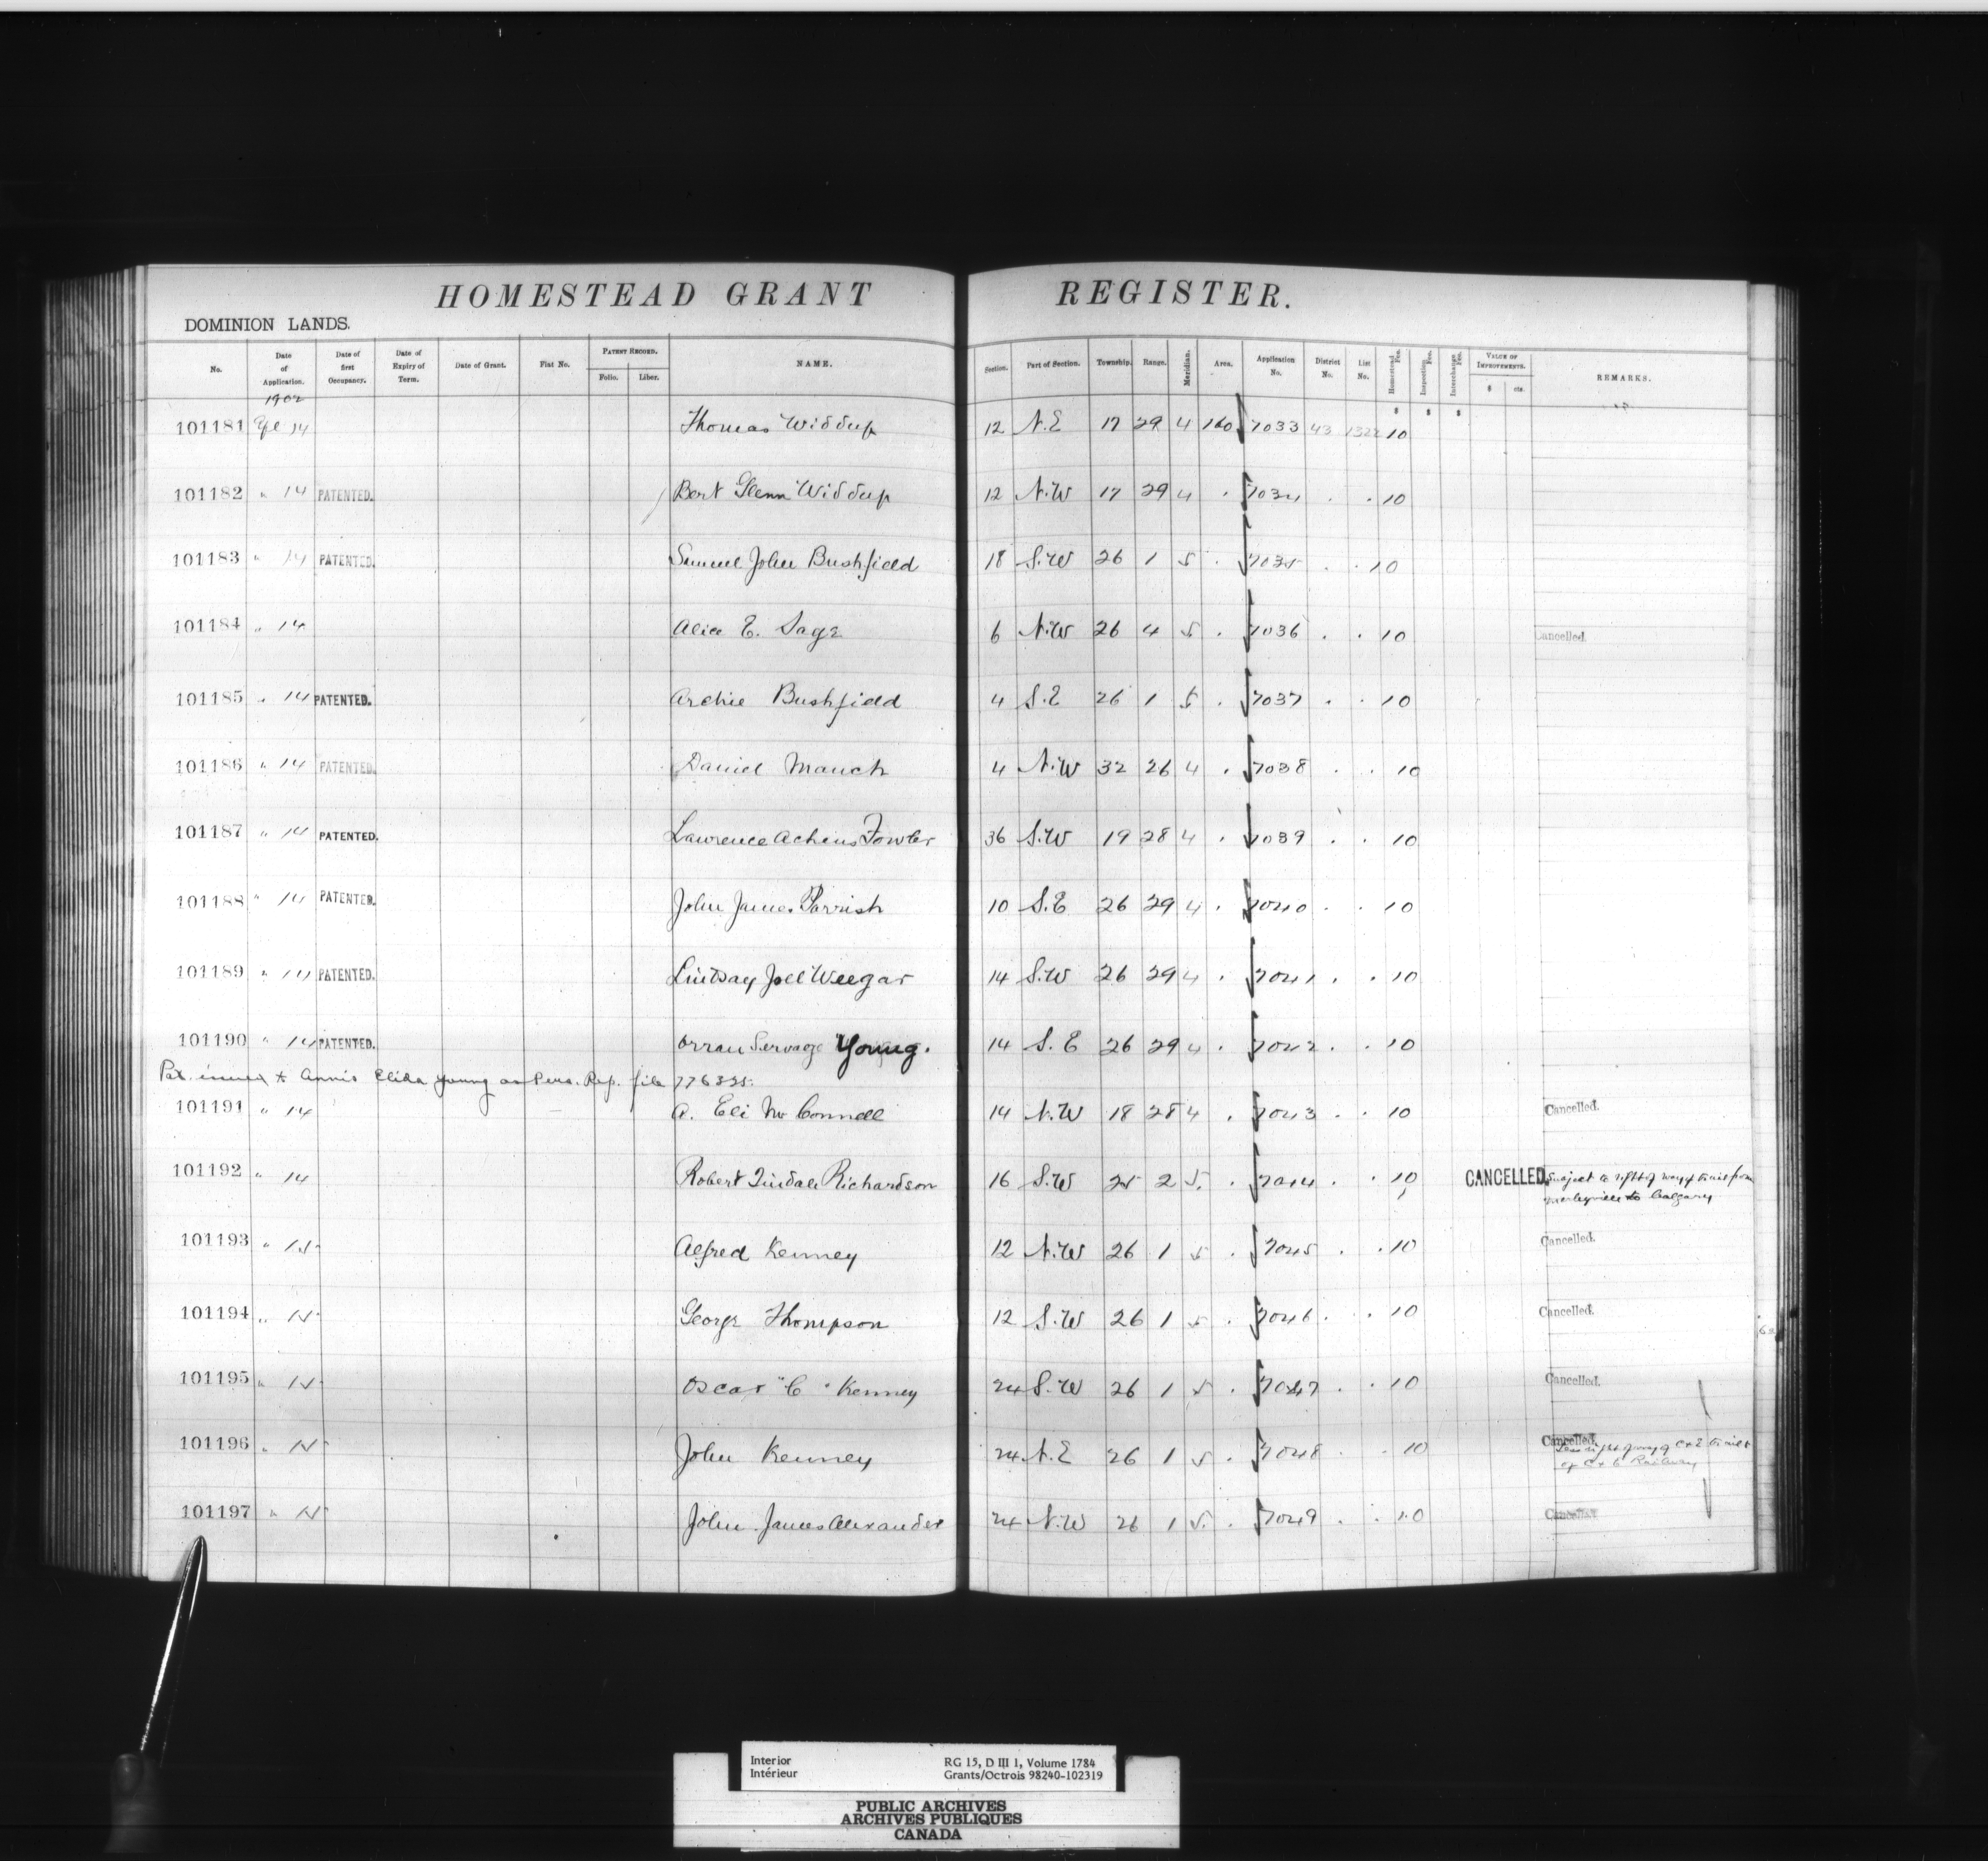 HOMESTEAD GRANT REGISTER.
DOMINION LANDS.
No. Date of Application. Date of first Occupancy. Date of Expiry of Term. Date of Grant. Fiat No. PATENT RECORD. Folio. Liber. NAME. Section. Part of Section. Township. Range. Meridian. Area. Application No. District No. List No. Homestead Fee. Inspection Fee. Interchange Fee. VALUE OF IMPROVEMENTS. $ cts. REMARKS.
1902 $ $ $
101181 Apl 14 Thomas Widdup 12 N.E 17 29 4 160 7033 43 1322 10
101182 " 14 PATENTED. Bert Glenn Widdup 12 N.W 17 29 4 . 7034 . . 10
101183 " 14 PATENTED. Samuel John Bushfield 18 S.W 26 1 5 . 7035 . . 10
101184 " 14 Alice E. Sage 6 N.W 26 4 5 . 7036 . . 10 Cancelled.
101185 " 14 PATENTED. Archie Bushfield 4 S.E 26 1 5 . 7037 . . 10
101186 " 14 PATENTED. Daniel Mauch 4 N.W 32 26 4 . 7038 . . 10
101187 " 14 PATENTED. Lawrence Achens Fowler 36 S.W 19 28 4 . 7039 . . 10
101188 " 14 PATENTED. John James Parrish 10 S.E 26 29 4 . 7040 . . 10
101189 " 14 PATENTED. Lindsay Joel Weegar 14 S.W 26 29 4 . 7041 . . 10
101190 " 14 PATENTED. Orran Servage Young. 14 S.E 26 29 4 . 7042 . . 10
Pat. issued to Annis Eliza Young as Pers. Rep. file 776325.
101191 " 14 A. Eli McConnell 14 N.W 18 28 4 . 7043 . . 10 Cancelled.
101192 " 14 Robert Tindale Richardson 16 S.W 25 2 5. . 7044 . . 10 CANCELLED. Subject to right of way of trail from
Morleyville to Calgary
101193 " 15 Alfred Kenney 12 N.W 26 1 5 . 7045 . . 10 Cancelled.
101194 " 15 George Thompson 12 S.W 26 1 5 . 7046 . . 10 Cancelled.
101195 " 15 Oscar "C" Kenney 24 S.W 26 1 5 . 7047 . . 10 Cancelled.
101196 " 15 John Kenney 24 N.E 26 1 5 . 7048 . . 10 Cancelled. Less right of way of C & E trail &
of C & E Railway
101197 " 15 John James Alexander 24 N.W 26 1 5. . 7049 . . 10 Cancelled
Interior RG 15, D III 1, Volume 1784
Intérieur Grants/Octrois 98240-102319
PUBLIC ARCHIVES
ARCHIVES PUBLIQUES
CANADA